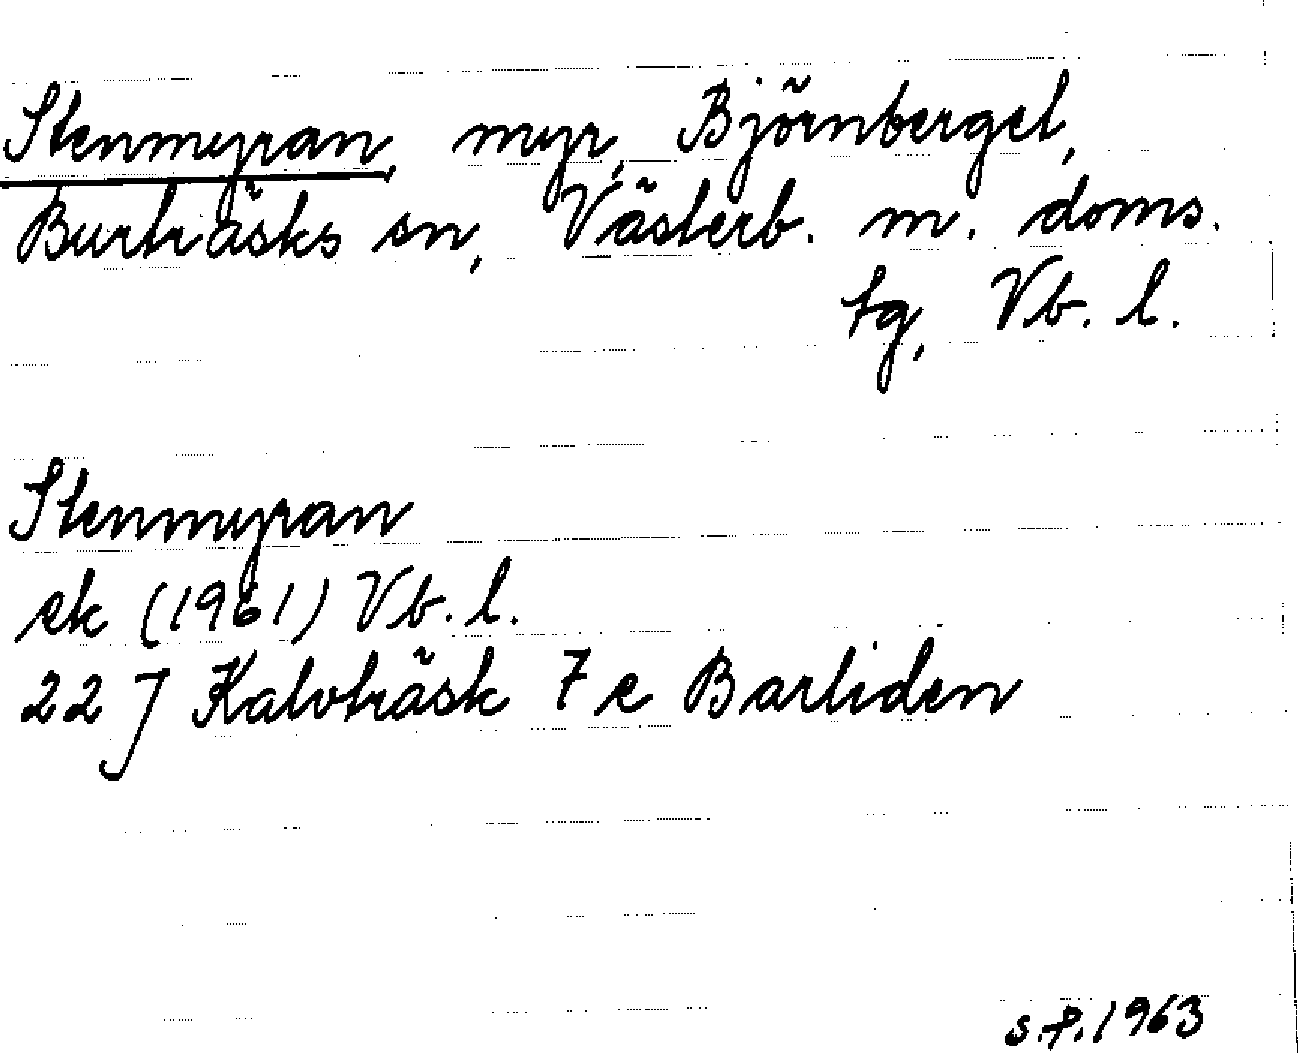 Stenmyran, myr, Björnberget,
Burträsks sn, Västerb. m. doms.
tg, Vb. l.
Stenmyran
ek (1961) Vb. l.
22 J Kalvträsk 7 e Barliden
s.f. 1963